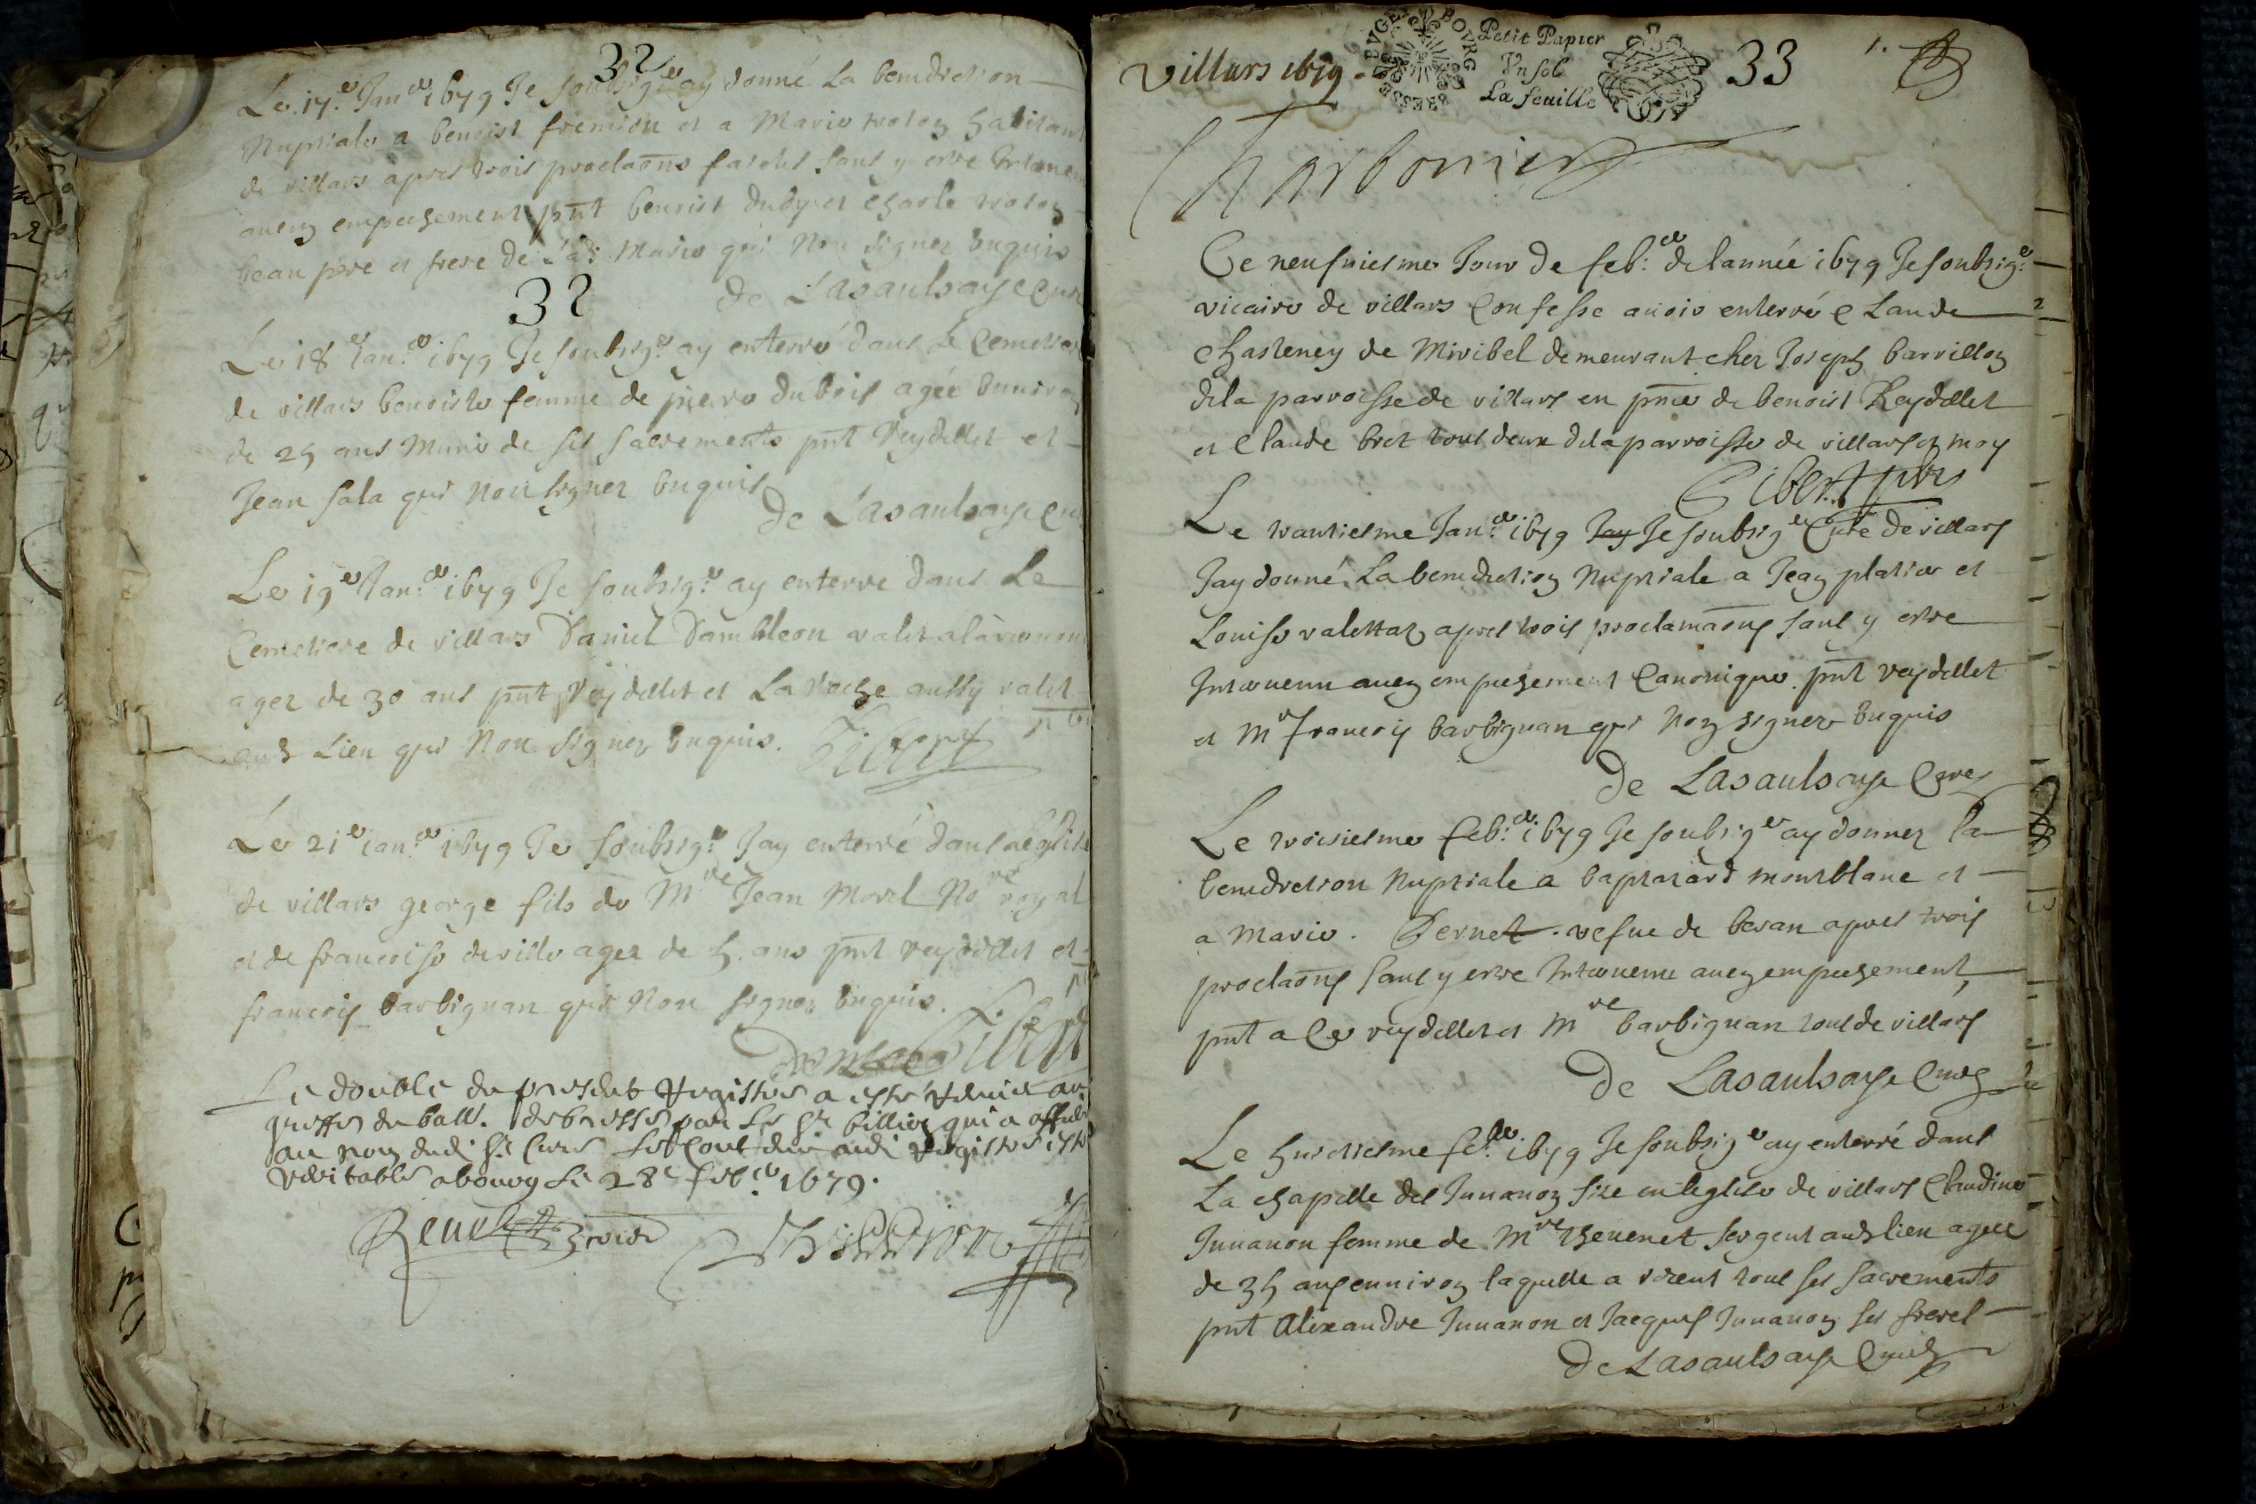 32
Le 17.e Jan.er 1679 Je soubsig.é ay donné La benediction
Nuptiale a benoist fremion et a Marie habitant
de villars apres trois proclaōns faictes sans y estre
aucun empechement pn̄t benoist et Charle
beau pere et frere de Marie qui Non signer Enquis
de Lasaulsaye Curé
32
Le 18 Jan.er 1679 Je soubsig.é ay enterré dans Le
de villars benoiste femme de pierre dubois agée
de 25 ans Munie de ses sacrements pn̄t Reydellet et
Jean sala qui Non signer Enquis
de Lasaulsaye
Le 19e Jan.er 1679 Je soubsig.é ay enterre dans Le
Cemetiere de villars Daniel valet
agez de 30 ans pn̄t Reydellet et La Roche aussy valet
aud Lieu qui Non signer Enquis. Gibert
Le 21e ian.er 1679 Je soubsig.é Jay enterré dans
de villars george fils de Mre Jean Morel No.re royal
et de francoise deville agez de 5. ans pn̄t reydellet et
francois barbignan qui Non signer Enquis.
Gibert
Le double du present Registre a esté remis au
greffe du ball. de bresse par Le Sr billion qui a
au nom dudi Sr Curé Le Contenu audi registre
veritable abourg Le 28e feb.er 1679.
villars 1679
BVGEY BOVRG BRESSE
Petit Papier
Vn sol
La feuille
33
1.
Charbonnier
Ce neufuiesme Jour de feb.er de lannée 1679 Je soubsig.é
vicaire de villars Confesse auoir enterré Claude
Chasteney de Miribel demeurant cher Joseph barrillon
dela parroisse de villars en pn̄ce de benoist Reydellet
et Claude bret tous deux dela parroisse de villars et moy
Gibert pbre
Le trantiesme Jan.er 1679 Jay Je soubsig.é Curé de villars
Jay donné La benediction Nuptiale a Jean platier et
Louise valettaz apres trois proclamaōns sans y estre
Interuenu aucun empechement Canonique pn̄t reydellet
et Mre francois barbignan qui Non signer Enquis
de Lasaulsaye Curé
Le troisiesme feb.er 1679 Je soubsig.é ay donner la
benediction Nuptiale a montblanc et
a Marie. Pernet. vefue de beran apres trois
proclaōns sans y estre Interuenu aucun empechement,
pn̄t a Ce reydellet et Mre barbignan tous de villars
de Lasaulsaye Curé
Le huictiesme feb.er 1679 Je soubsig.é ay enterré dans
La chapelle des Juuanon size en leglise de villars Claudine
Juuanon femme de Mre theuenet sergent aud lieu agée
de 35 ans enuiron laquelle a receut tous ses sacrements
pn̄t Alexandre Juuanon et Jacques Juuanon ses freres
de Lasaulsaye Curé